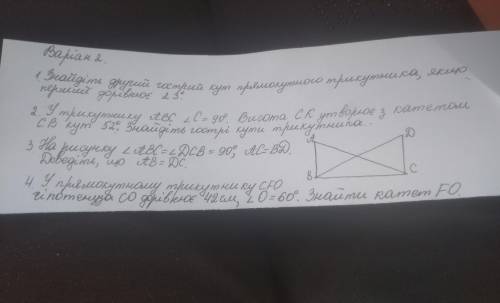 Варіан 2.
1. Знайдіть другий гострий кут прямокутного трикутника, якщо
перший дорівнює 23°
2. У трикутнику ABC ∠C=90°. Висота СК утворює з катетом
СВ кут 52°, Знайдіть гострі кути трикутника.
3 На рисунку ∠ABC=∠DCB=90°, AC=BD.
Доведіть, що AB=DC.
A
D
B
C
4. У прямокутному трикутнику CFO
гіпотенуза СО дорівнює 42см, ∠O=60°. Знайти катет FO.